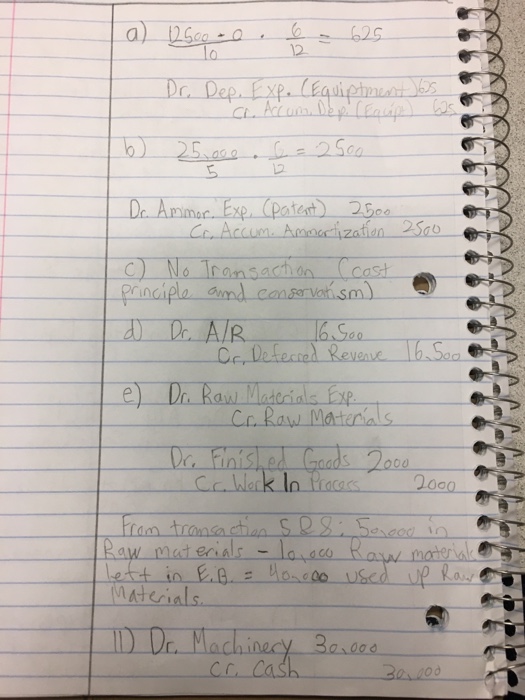 a) 12500 - 0 / 10 · 6/12 = 625
Dr. Dep. Exp. (Equiptment) 625
Cr. Accum. Dep. (Equip) 625
b) 25,000 / 5 · 6/12 = 2500
Dr. Ammor. Exp. (patent) 2500
Cr. Accum. Ammortization 2500
c) No Transaction (cost
principle and conservatism)
d) Dr. A/R 16,500
Cr. Deferred Revenue 16,500
e) Dr. Raw Materials Exp.
Cr. Raw Materials
Dr. Finished Goods 2000
Cr. Work In Process 2000
From transaction 5 & 8: 50,000 in
Raw materials - 10,000 Raw materials
left in E.B. = 40,000 used up Raw
Materials.
11) Dr. Machinery 30,000
cr. Cash 30,000